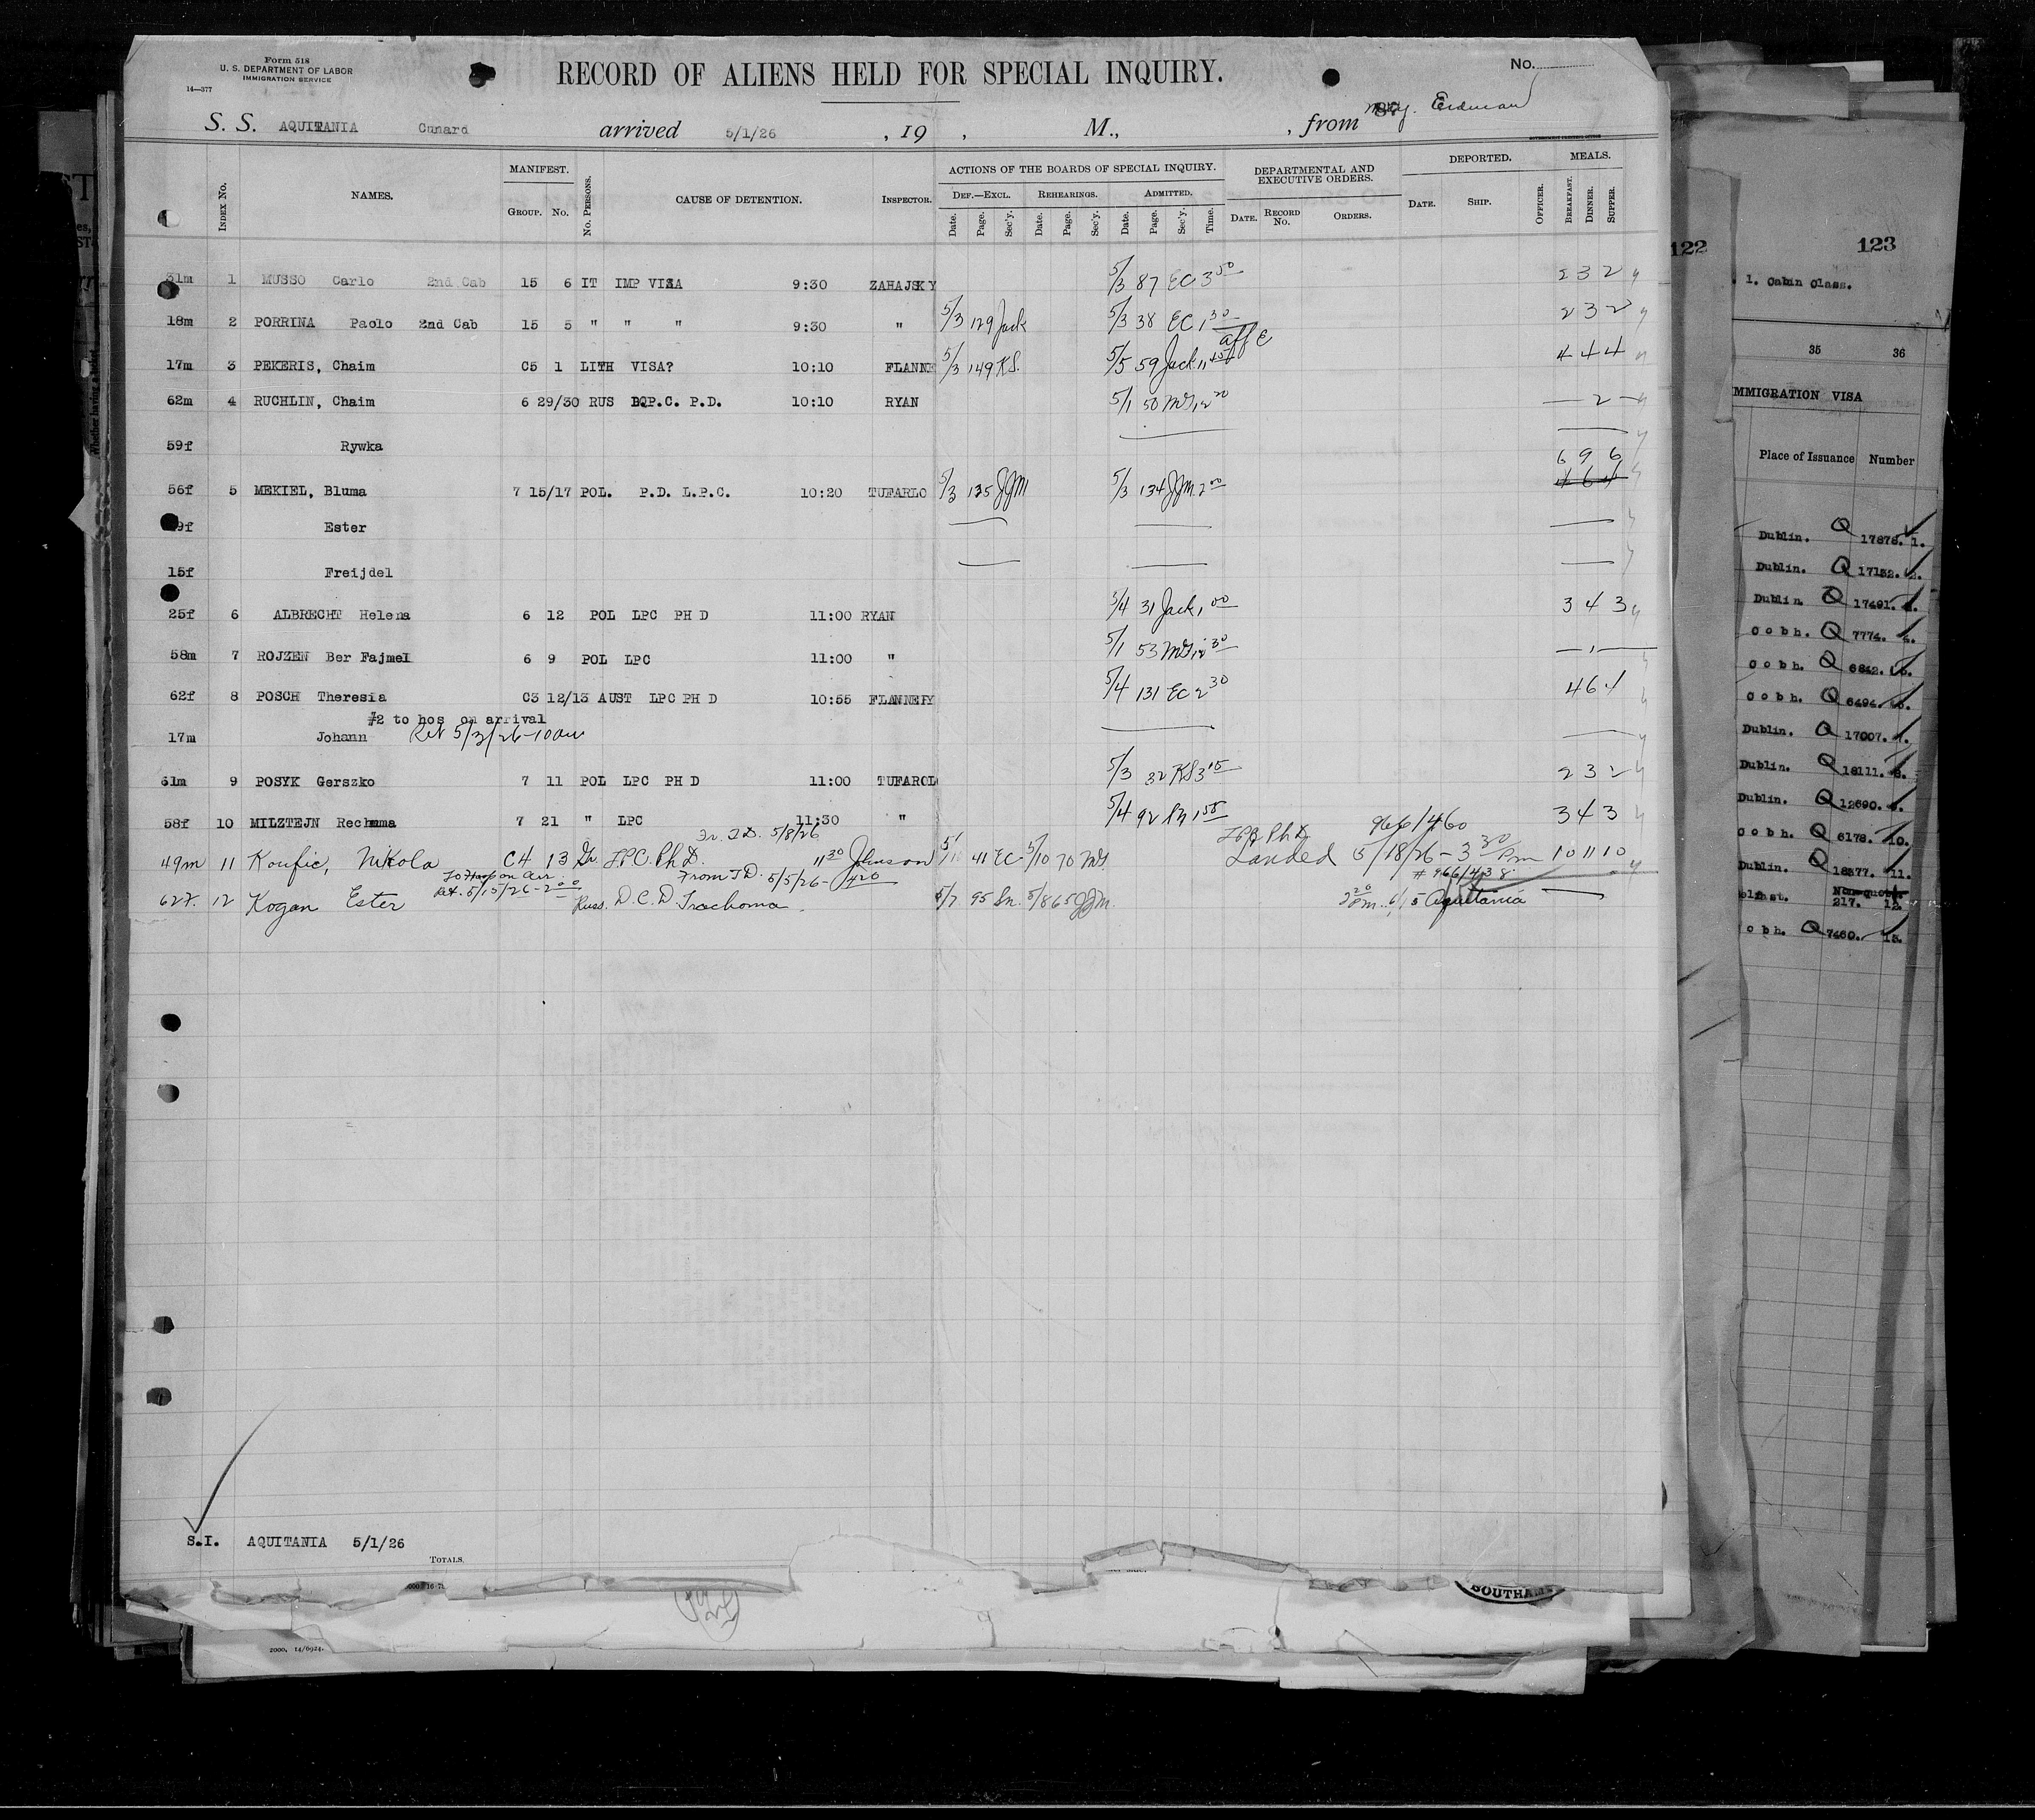 Form 518
U. S. DEPARTMENT OF LABOR
IMMIGRATION SERVICE
14—377
RECORD OF ALIENS HELD FOR SPECIAL INQUIRY.
No.
S. S. AQUITANIA Cunard arrived 5/1/26 , 19 , M., , from
INDEX No. NAMES. MANIFEST. GROUP. No. No. PERSONS. CAUSE OF DETENTION. INSPECTOR. ACTIONS OF THE BOARDS OF SPECIAL INQUIRY. DEF.—EXCL. REHEARINGS. ADMITTED. Date. Page. Sec'y. Date. Page. Sec'y. Date. Page. Sec'y. Time. DEPARTMENTAL AND EXECUTIVE ORDERS. DATE. RECORD No. ORDERS. DEPORTED. DATE. SHIP. OFFICER. MEALS. BREAKFAST. DINNER. SUPPER.
31m 1 MUSSO Carlo 2nd Cab 15 6 IT IMP VISA 9:30 ZAHAJSKY 5/3 87 EC 3 50 2 3 2
18m 2 PORRINA Paolo 2nd Cab 15 5 " " " 9:30 " 5/3 129 Jack 5/3 38 EC 1 30 2 3 2
17m 3 PEKERIS, Chaim C5 1 LITH VISA? 10:10 FLANNE 5/3 149 KS. 5/5 59 Jack 11 45 4 4 4
62m 4 RUCHLIN, Chaim 6 29/30 RUS P.C. P.D. 10:10 RYAN 5/1 50 12 20 — 2 —
59f Rywka
6 9 6
56f 5 MEKIEL, Bluma 7 15/17 POL. P.D. L.P.C. 10:20 TUFARLO 5/3 135 JJM 5/3 134 JJM 2 00 4 6 4
19f Ester
15f Freijdel
25f 6 ALBRECHT Helena 6 12 POL LPC PH D 11:00 RYAN 5/4 31 Jack 1 00 3 4 3
58m 7 ROJZEN Ber Fajmel 6 9 POL LPC 11:00 " 5/1 53 12 30 — 1 —
62f 8 POSCH Theresia C3 12/13 AUST LPC PH D 10:55 FLANNERY 5/4 131 EC 2 30 4 6 4
#2 to hos on arrival
17m Johann Ret 5/3/26-10am
61m 9 POSYK Gerszko 7 11 POL LPC PH D 11:00 TUFAROLO 5/3 32 KS 3 15 2 3 2
58f 10 MILZTEJN Rechuma 7 21 " LPC 11:30 " 5/4 92 Sn 1 55 3 4 3
5/8/26 LPC PhD 966/460
49m 11 Koufic, Nikola C4 13 Gr. LPC. PhD. 11 30 Johnson 5/10 41 EC 5/10 70 Landed 5/18/26-3 30 Pm 10 11 10
To Hosp on arr. From T.D. 5/5/26- 4 20 # 966/438
Ret. 5/15/26-2 00
62f. 12 Kogan Ester Russ. D.C.D Trachoma. 5/7 95 Sn. 5/8 65 JJM. Aquitania
S.I. AQUITANIA 5/1/26
TOTALS.
SOUTHAM
2000. 14/6924.
122
123
1. Cabin Class.
35 36
IMMIGRATION VISA
Place of Issuance Number
Dublin. Q 17878. 1.
Dublin. Q 17152. 2.
Dublin. Q 17491. 3.
Cobh. Q 7774. 4.
Cobh. Q 6842. 5.
Cobh. Q 6494. 6.
Dublin. Q 17007. 7.
Dublin. Q 18111. 8.
Dublin. Q 12690. 9.
Cobh. Q 6178. 10.
Dublin. Q 18377. 11.
elfast. Non-quota 217. 12.
obh. Q 7460. 13.